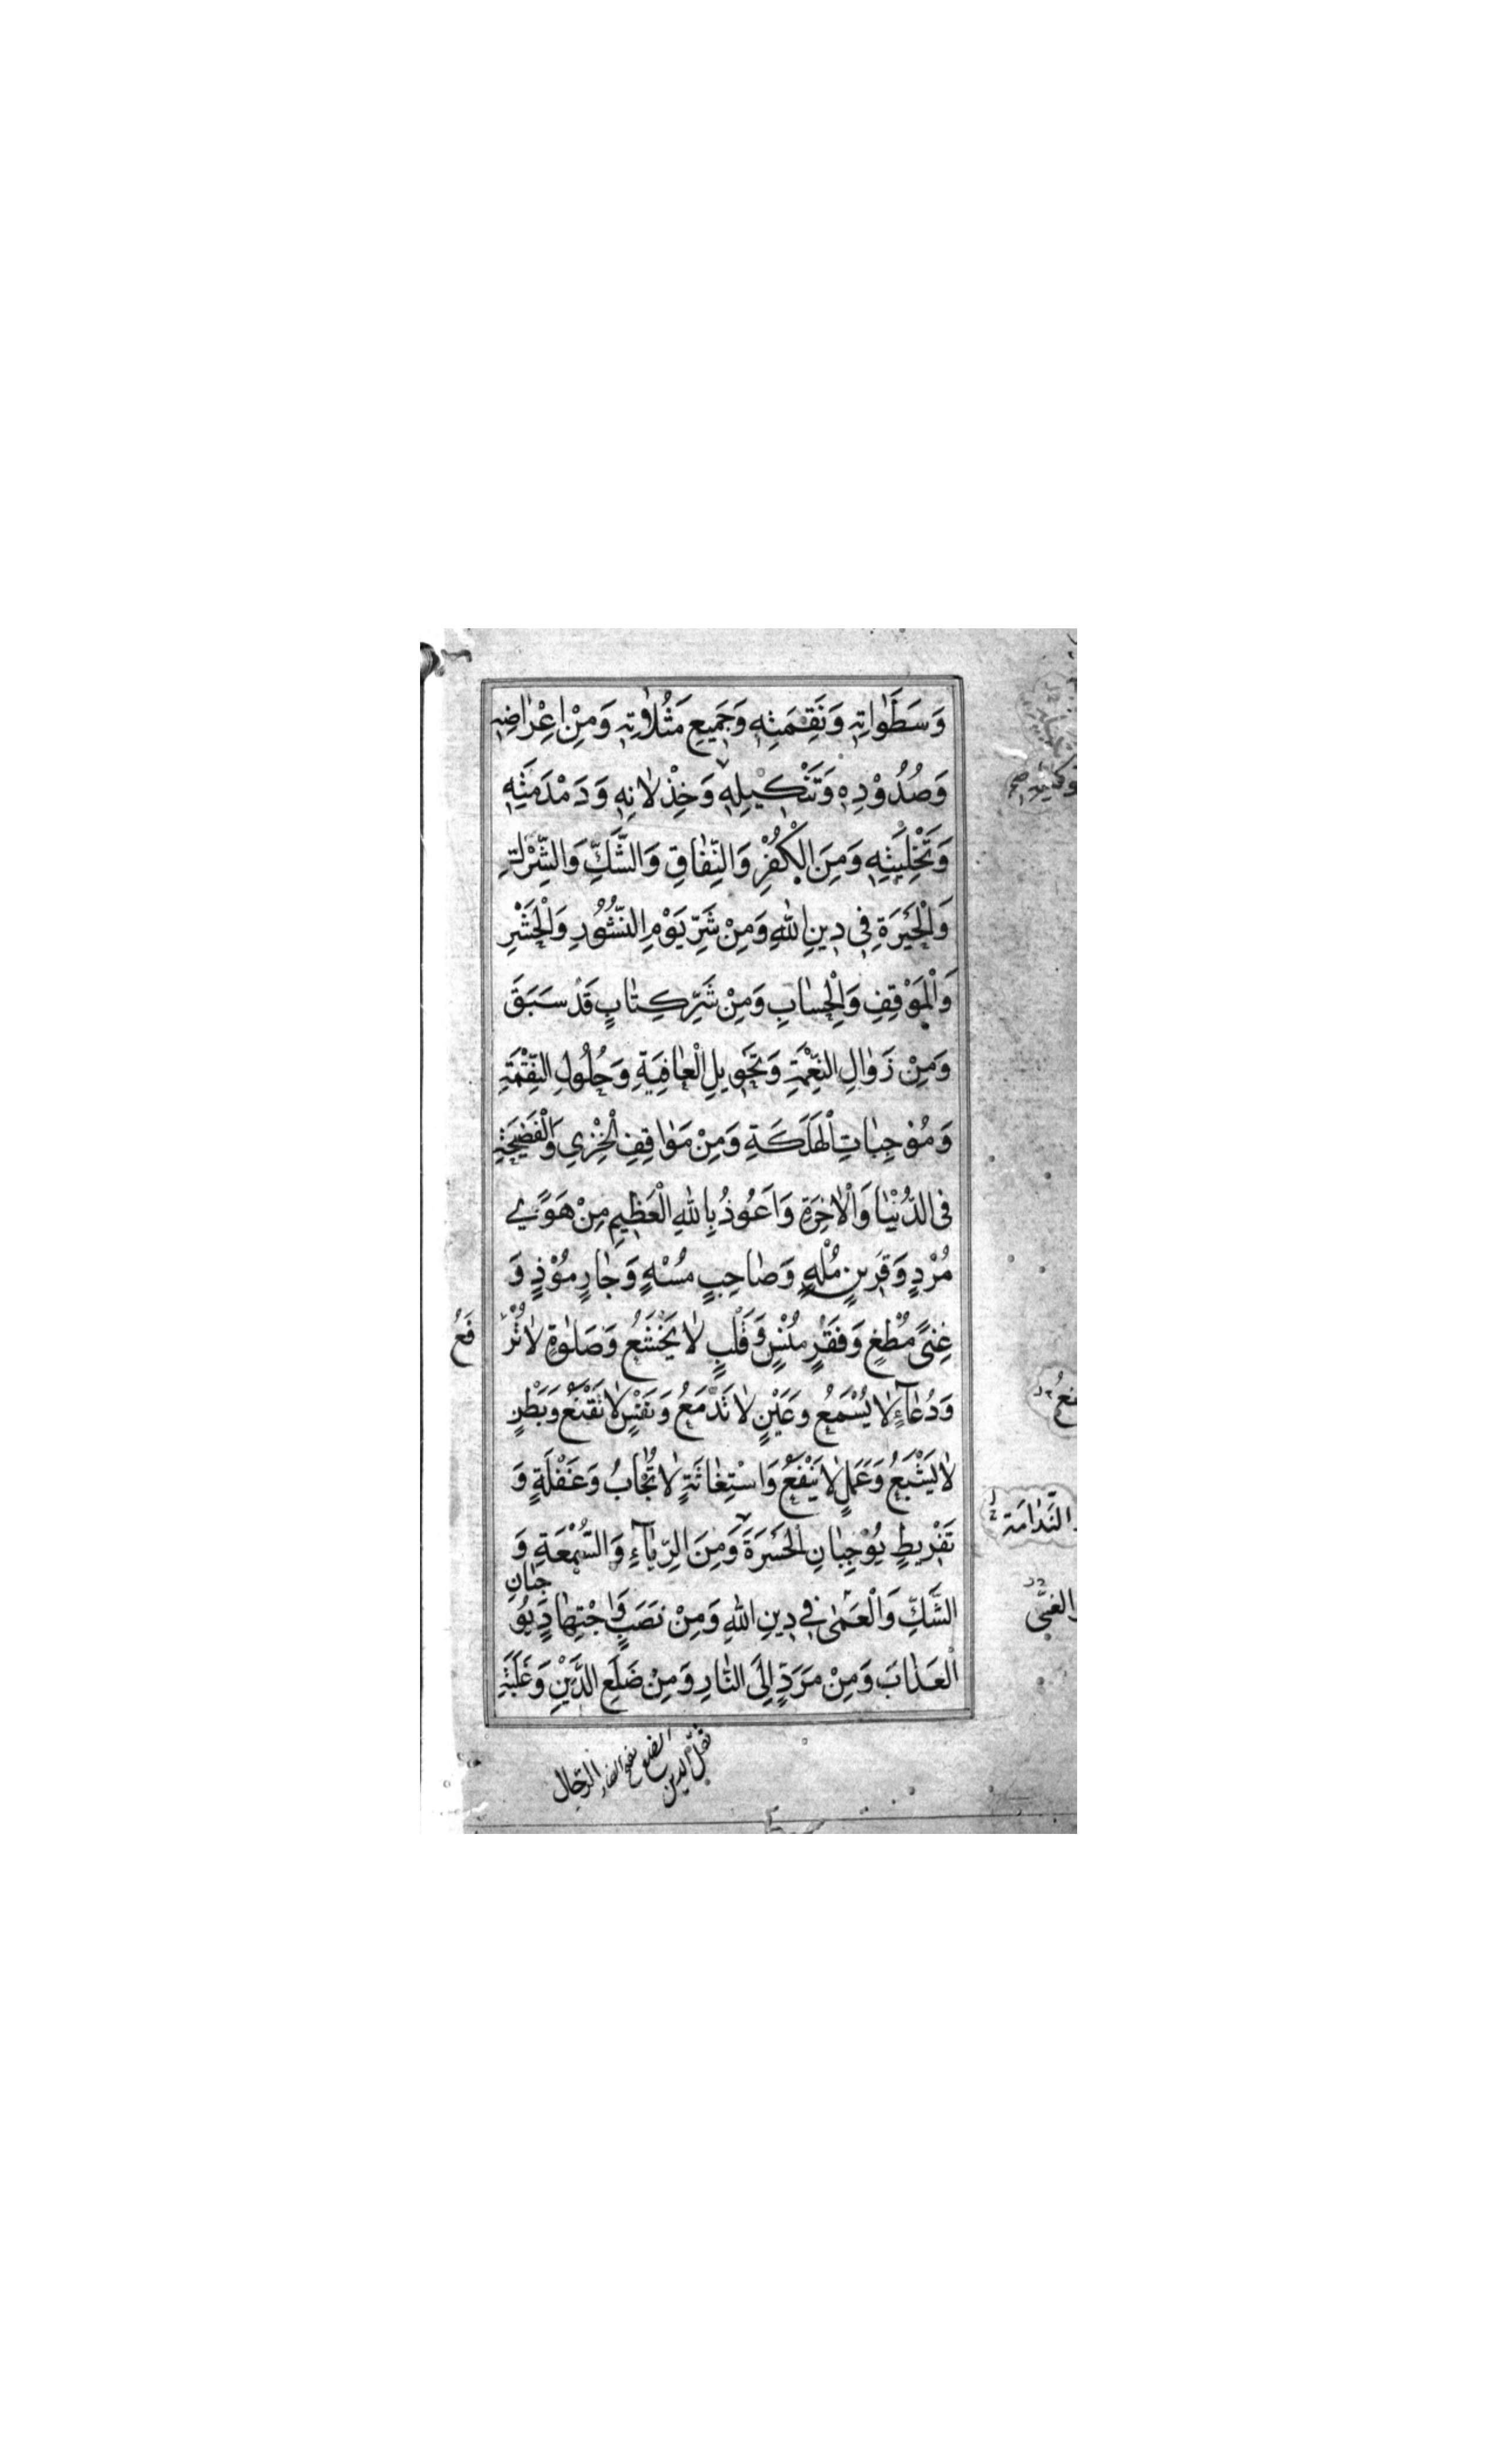 وَسَطَوٰاتِهِ وَنَقِمَتِهِ وَجَمِيعِ مَثُلاٰتِهِ وَمِنْ اِعْرٰاضِهِ
وَصُدُوْدِهِ وَتَنْكِيلِهِ وَخِذْلاٰنِهِ وَدَمْدَمَتِهِ
وَتَخْلِيَتِهِ وَمِنَ الْكُفْرِ وَالنِّفٰاقِ وَالشَّكِّ وَالشِّرْكِ
وَالْحَيْرَةِ فِي دِينِ اللهِ وَمِنْ شَرِّ يَوْمِ النُّشُوْرِ وَالْحَشْرِ
وَالْمَوْقِفِ وَالْحِسٰابِ وَمِنْ شَرِّ كِتٰابٍ قَدْ سَبَقَ
وَمِنْ زَوٰالِ النِّعْمَةِ وَتَحْوِيلِ الْعٰافِيَةِ وَحُلُولِ النِّقْمَةِ
وَمُوْجِبٰاتِ الْهَلَكَةِ وَمِنْ مَوٰاقِفِ الْخِزْيِ وَالْفَضِيحَةِ
فِى الدُّنْيٰا وَالْاٰخِرَةِ وَاَعُوْذُ بِاللهِ الْعَظِيمِ مِنْ هَوًى
مُرْدٍ وَقَرِينٍ مُلْهٍ وَصٰاحِبٍ مُسْهٍ وَجٰارٍ مُوْذٍ وَ
غِنىً مُطْغٍ وَفَقْرٍ مُنْسٍ وَقَلْبٍ لاٰ يَخْشَعُ وَصَلوٰةٍ لاٰ تُرْ
فَعُ
وَدُعٰآءٍ لاٰ يُسْمَعُ وَعَيْنٍ لاٰ تَدْمَعُ وَنَفْسٍ لاٰ تَقْنَعُ وَبَطْنٍ
لاٰ يَشْبَعُ وَعَمَلٍ لاٰ يَنْفَعُ وَاسْتِغٰاثَةٍ لاٰ تُجٰابُ وَغَفْلَةٍ وَ
تَفْرِيطٍ يُوْجِبٰانِ الْحَسْرَةَ وَمِنَ الرِّيٰآءِ وَالسُّمْعَةِ وَ
وَالنَّدٰامَةَ
الشَّكِّ وَالْعَمٰى فِي دِينِ اللهِ وَمِنْ نَصَبٍ وَاجْتِهٰادٍ يُو
جِبٰانِ
الْعَذٰابَ وَمِنْ مَرَدٍّ اِلَى النّٰارِ وَمِنْ ضَلَعِ الدَّيْنِ وَغَلَبَةِ
الرِّجٰالِ